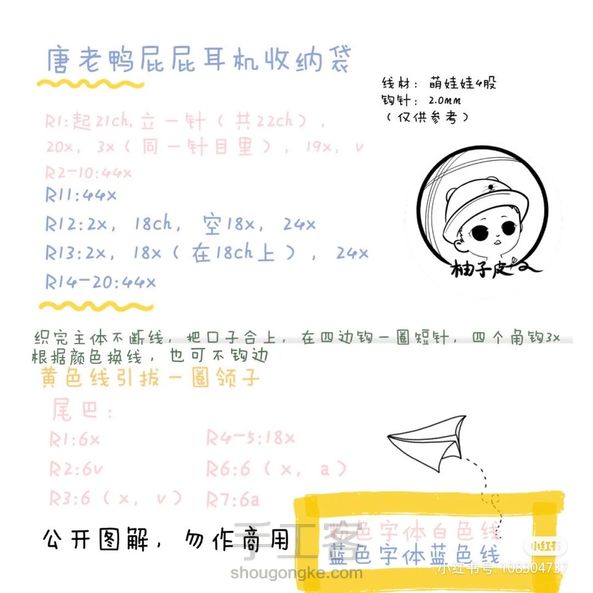 唐老鸭屁屁耳机收纳袋
线材：萌娃娃4股
钩针：2.0mm
（仅供参考）
R1:起21ch,立一针（共22ch），
20x，3x（同一针目里），19x，v
R2-10:44x
R11:44x
R12:2x，18ch，空18x，24x
R13:2x，18x（在18ch上），24x
R14-20:44x
柚子皮
织完主体不断线，把口子合上，在四边钩一圈短针，四个角钩3x
根据颜色换线，也可不钩边
黄色线引拔一圈领子
尾巴：
R1:6x
R2:6v
R3:6（x，v）
R4-5:18x
R6:6（x，a）
R7:6a
公开图解，勿作商用
色字体白色线
蓝色字体蓝色线
手工客
shougongke.com
小红书
小红书号: